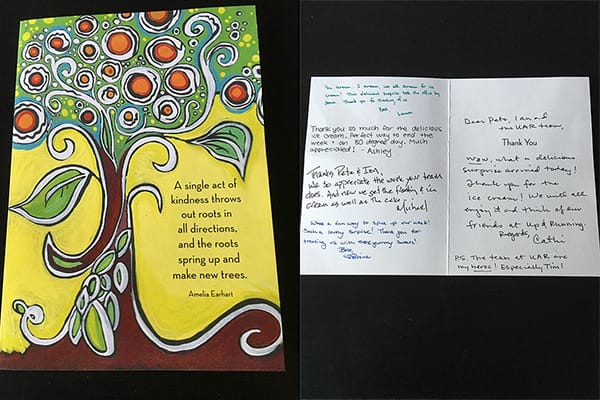 A single act of
kindness throws
out roots in
all directions,
and the roots
spring up and
make new trees.
Amelia Earhart
You scream, I scream, we all scream for ice
cream! This delicious surprise took the office by
storm. Thank you for thinking of us
Thank you so much for the delicious
ice cream. Perfect way to end the
week + an 80 degree day. Much
appreciated! - Ashley
Thanks Pete & Ian,
We so appreciate the work your team
does. And now we get the frosting & ice
cream as well as the cake!
Michael
What a fun way to spice up our week!
Such a lovely surprise! Thank you for
treating us with these yummy sweets!
Best,
Dear Pete, Ian and
the UAR team,
Thank You
Wow, what a delicious
surprise arrived today!
Thank you for the
ice cream! We will all
enjoy it and think of our
friends at Up & Running.
Regards,
Cathi
PS The team at UAR are
my heros! Especially Tim!